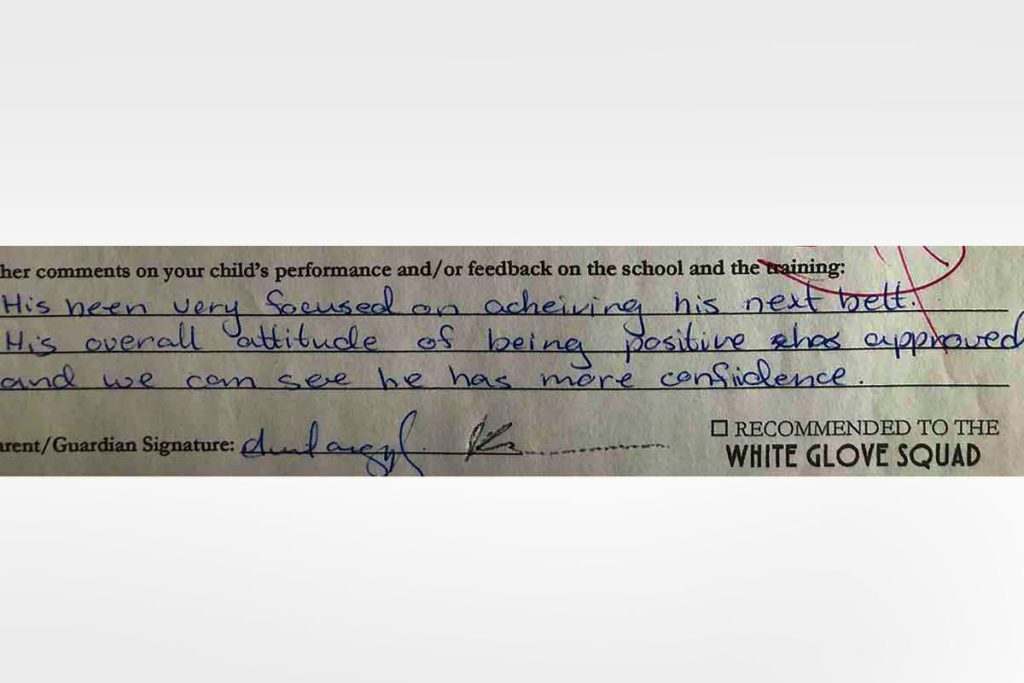 her comments on your child's performance and/or feedback on the school and the training:
His been very focused on acheiving his next belt.
His overall attitude of being positive has approved
and we can see he has more confidence.
arent/Guardian Signature:
☐ RECOMMENDED TO THE
WHITE GLOVE SQUAD